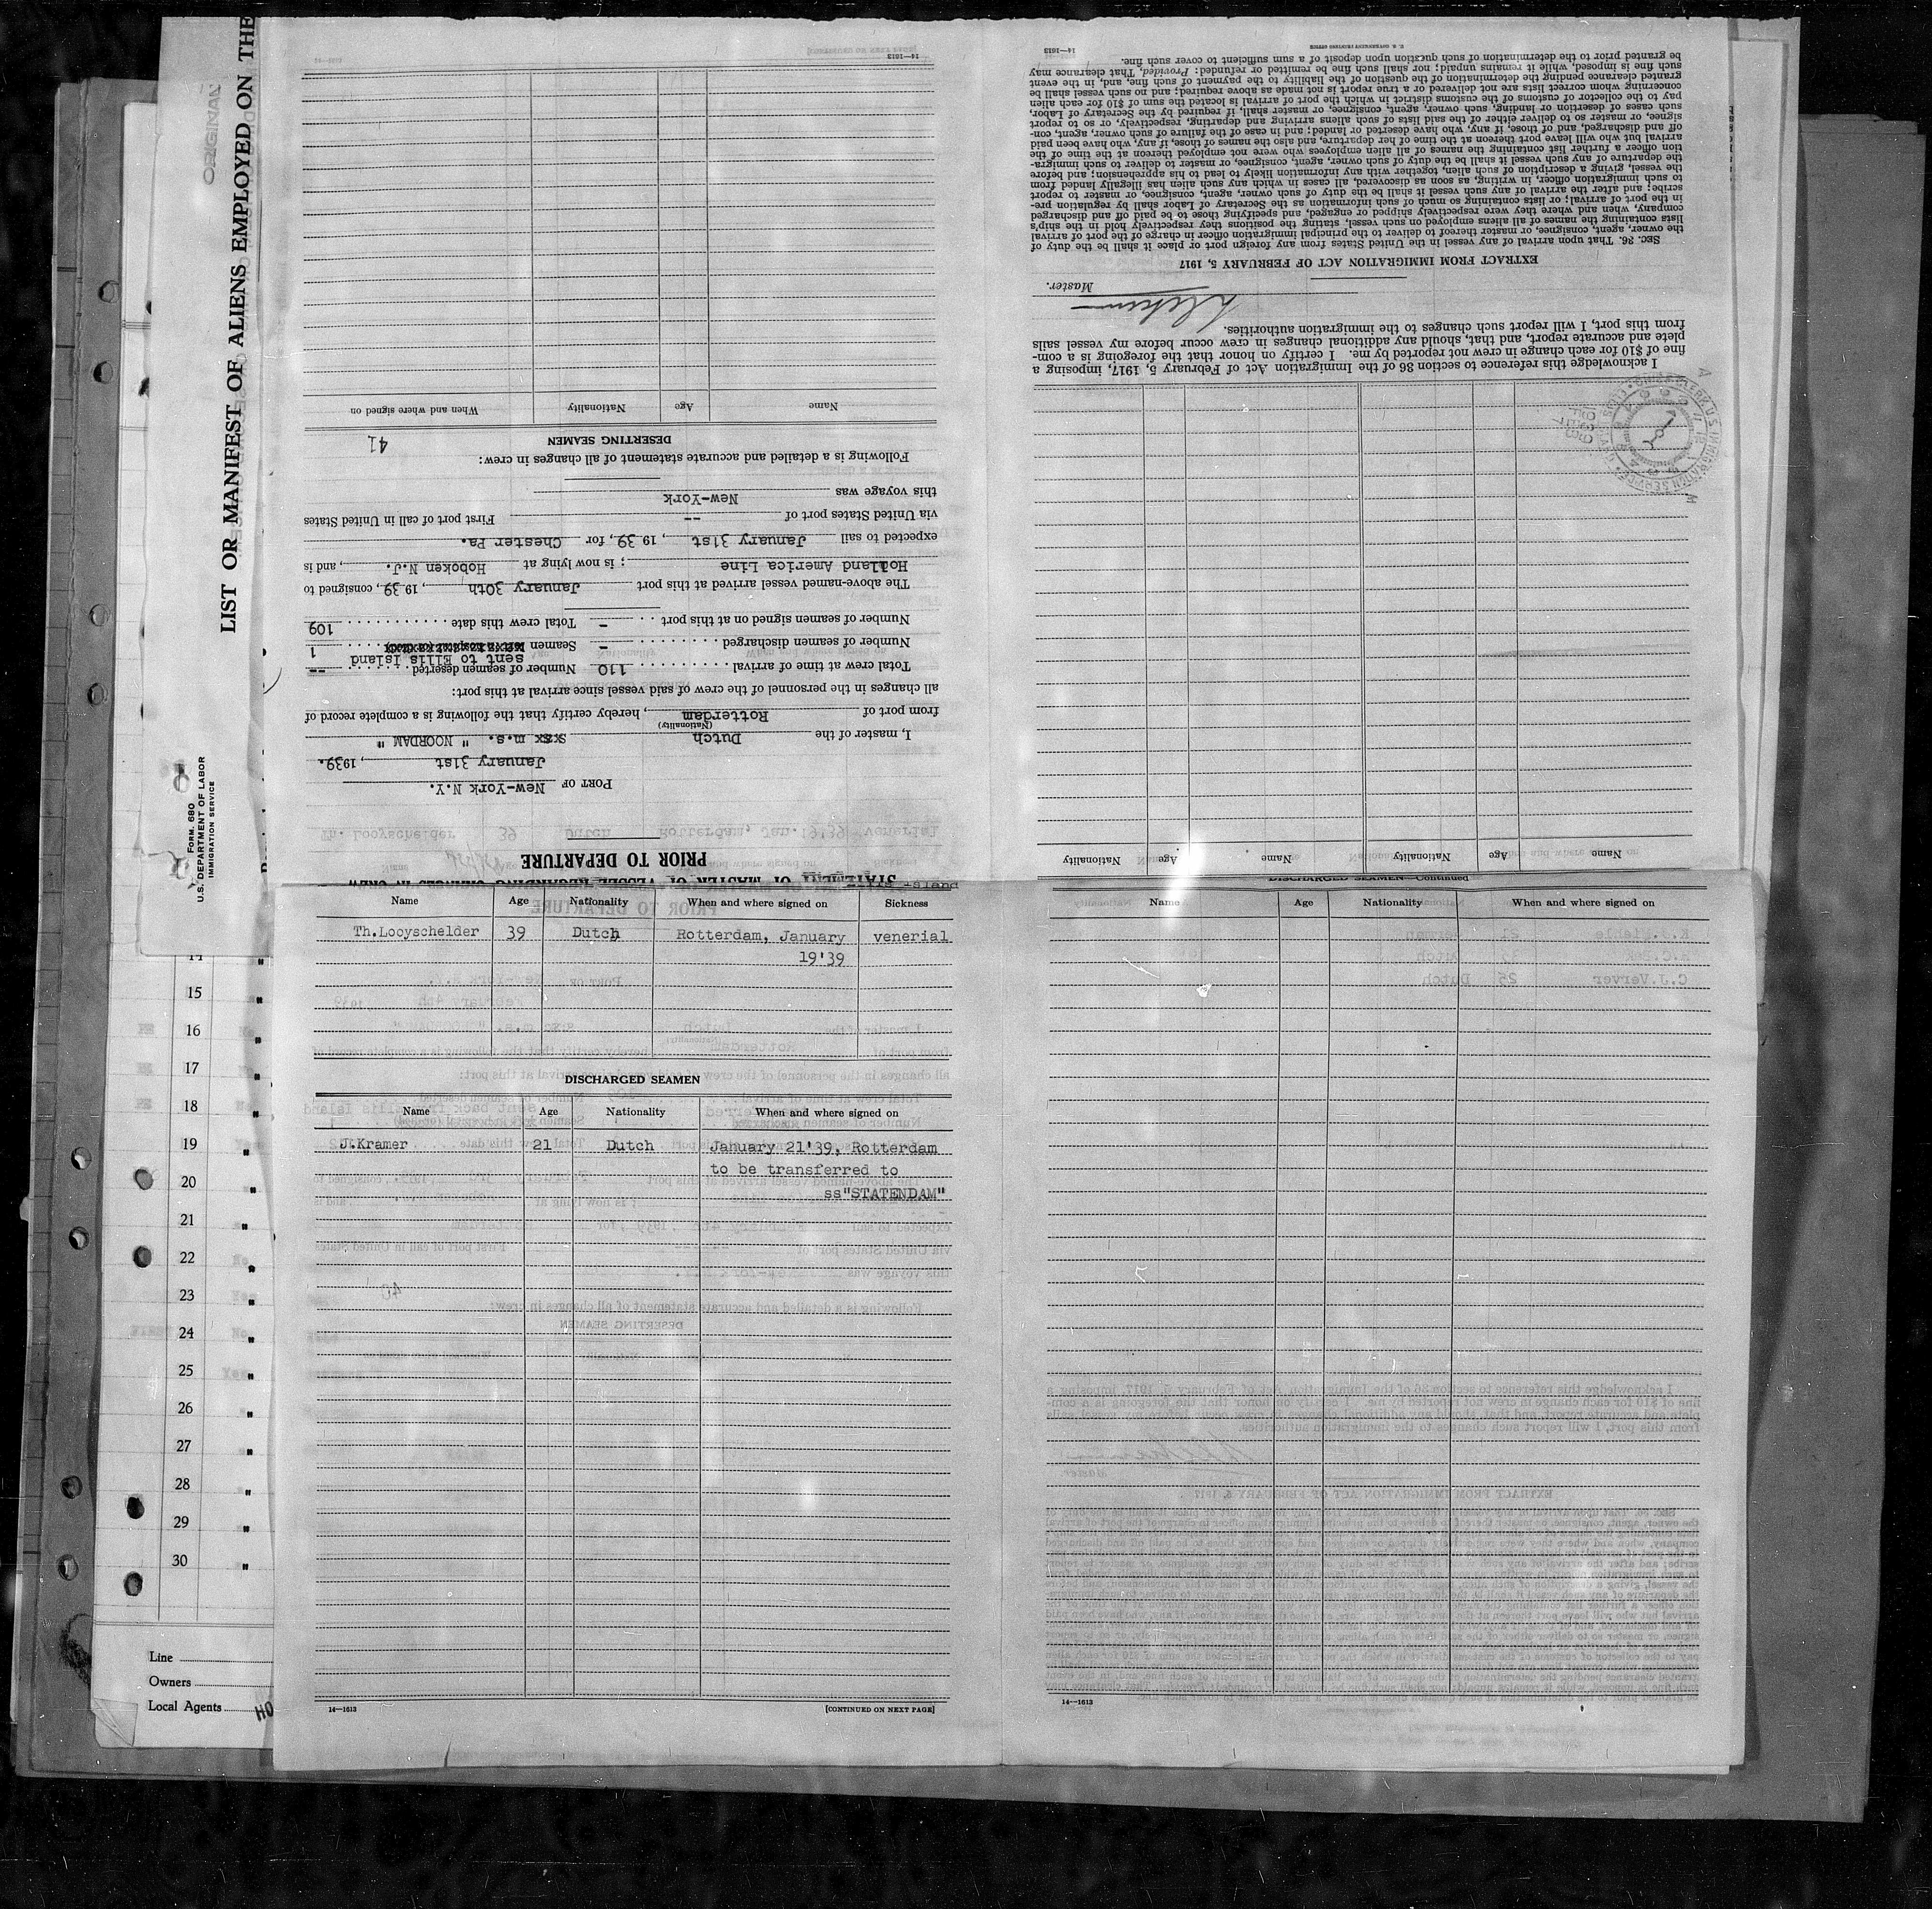 ORIGINAL
LIST OR MANIFEST OF ALIENS EMPLOYED ON THE
FORM 680
U.S. DEPARTMENT OF LABOR
IMMIGRATION SERVICE
STATEMENT OF MASTER OF VESSEL REGARDING CHANGES IN CREW
PRIOR TO DEPARTURE
PORT OF New-York N.Y.
January 31st, 1939.
I, master of the Dutch m.s. " NOORDAM "
(Nationality)
from port of Rotterdam, hereby certify that the following is a complete record of
all changes in the personnel of the crew of said vessel since arrival at this port:
Total crew at time of arrival 110 Number of seamen deserted --
sent to Ellis Island
Number of seamen discharged - Seamen 1
Number of seamen signed on at this port - Total crew this date 109
The above-named vessel arrived at this port January 30th, 1939, consigned to
Holland America Line; is now lying at Hoboken N.J., and is
expected to sail January 31st, 1939, for Chester Pa.
via United States port of -- First port of call in United States
this voyage was New-York
Following is a detailed and accurate statement of all changes in crew:
41
DESERTING SEAMEN
Name Age Nationality When and where signed on
14—1613
Name Age Nationality Name Age Nationality
I acknowledge this reference to section 36 of the Immigration Act of February 5, 1917, imposing a
fine of $10 for each change in crew not reported by me. I certify on honor that the foregoing is a com-
plete and accurate report, and that, should any additional changes in crew occur before my vessel sails
from this port, I will report such changes to the immigration authorities.
Master.
EXTRACT FROM IMMIGRATION ACT OF FEBRUARY 5, 1917
SEC. 36. That upon arrival of any vessel in the United States from any foreign port or place it shall be the duty of
the owner, agent, consignee, or master thereof to deliver to the principal immigration officer in charge of the port of arrival
lists containing the names of all aliens employed on such vessel, stating the positions they respectively hold in the ship's
company, when and where they were respectively shipped or engaged, and specifying those to be paid off and discharged
in the port of arrival; or lists containing so much of such information as the Secretary of Labor shall by regulation pre-
scribe; and after the arrival of any such vessel it shall be the duty of such owner, agent, consignee, or master to report
to such immigration officer, in writing, as soon as discovered, all cases in which any such alien has illegally landed from
the vessel, giving a description of such alien, together with any information likely to lead to his apprehension; and before
the departure of any such vessel it shall be the duty of such owner, agent, consignee, or master to deliver to such immigra-
tion officer a further list containing the names of all alien employees who were not employed thereon at the time of the
arrival but who will leave port thereon at the time of her departure, and also the names of those, if any, who have been paid
off and discharged, and of those, if any, who have deserted or landed; and in case of the failure of such owner, agent, con-
signee, or master so to deliver either of the said lists of such aliens arriving and departing, respectively, or so to report
such cases of desertion or landing, such owner, agent, consignee, or master shall, if required by the Secretary of Labor,
pay to the collector of customs of the customs district in which the port of arrival is located the sum of $10 for each alien
concerning whom correct lists are not delivered or a true report is not made as above required; and no such vessel shall be
granted clearance pending the determination of the question of the liability to the payment of such fine, and, in the event
such fine is imposed, while it remains unpaid; nor shall such fine be remitted or refunded: Provided, That clearance may
be granted prior to the determination of such question upon deposit of a sum sufficient to cover such fine.
U. S. GOVERNMENT PRINTING OFFICE
14—1613
Ellis Island
Name Age Nationality When and where signed on Sickness
Th.Looyschelder 39 Dutch Rotterdam, January venerial
19'39
DISCHARGED SEAMEN
Name Age Nationality When and where signed on
J.Kramer 21 Dutch January 21'39, Rotterdam
to be transferred to
ss"STATENDAM"
14—1613
[CONTINUED ON NEXT PAGE]
DISCHARGED SEAMEN—Continued
Name Age Nationality When and where signed on
14—1613
14
15 "
16 "
17 "
18 "
19 "
20 "
21 "
22 "
23 "
24 "
25 "
26 "
27 "
28 "
29 "
30 "
Line
Owners
Local Agents HO